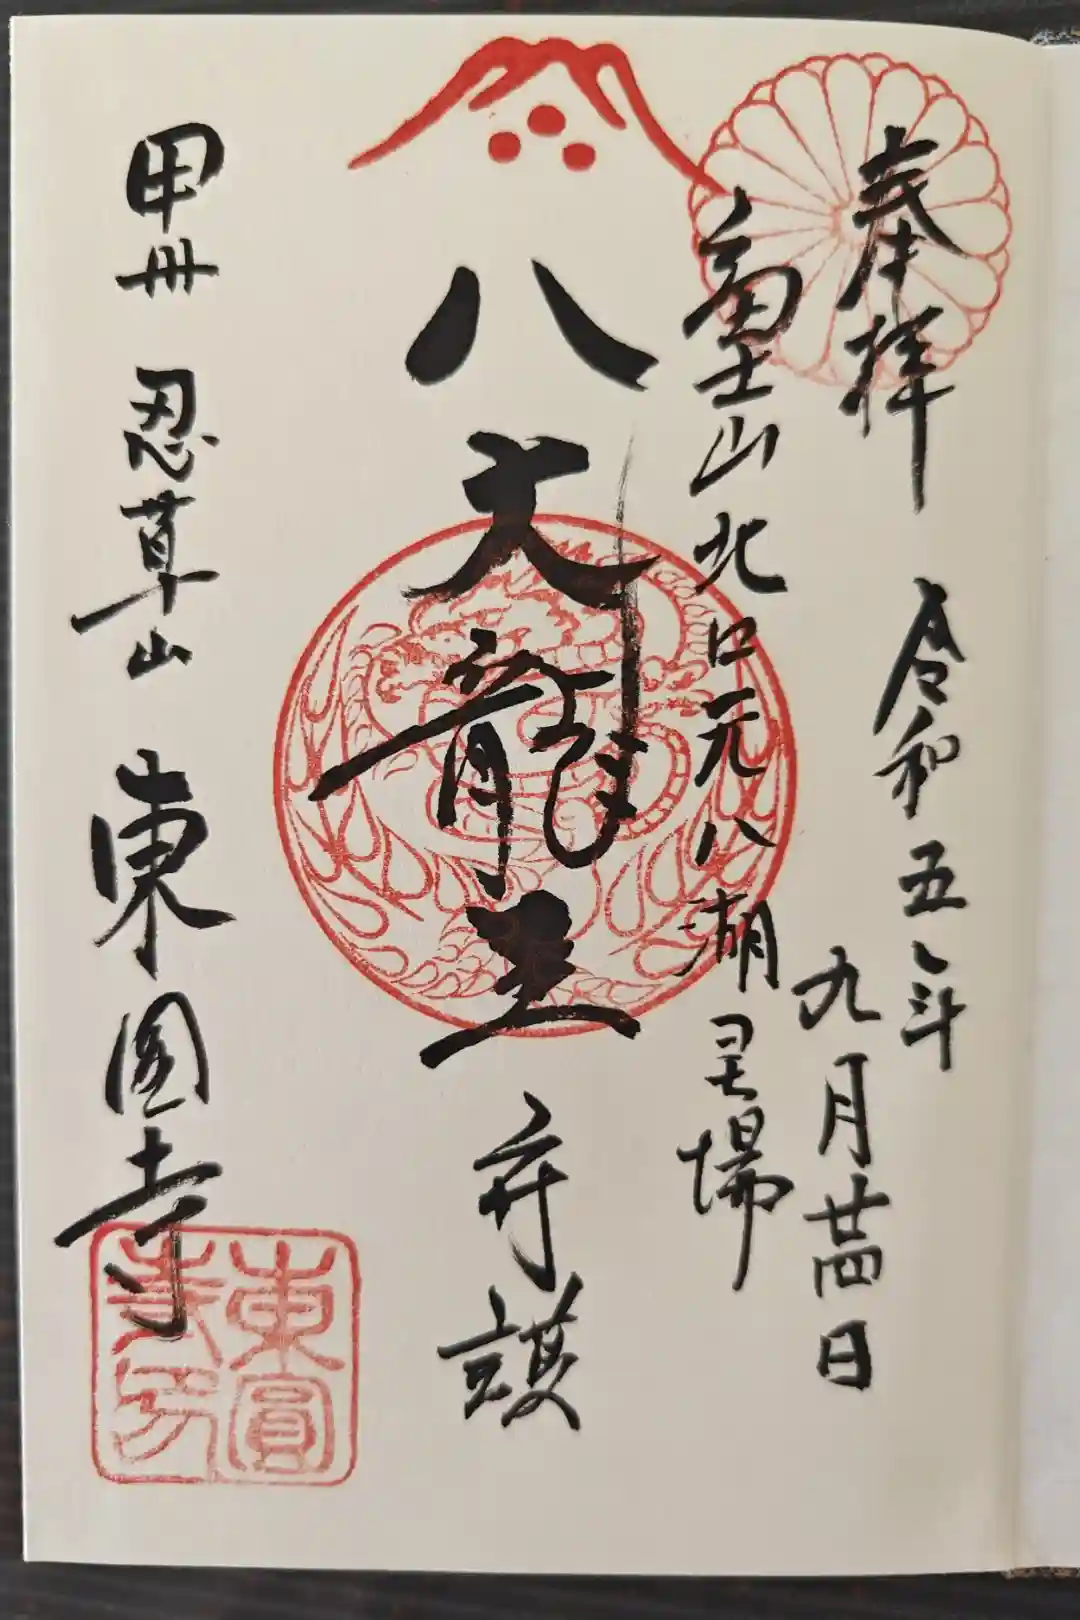 奉拝
令和五年
九月廿四日
富士山北口元八湖霊場
八大龍王
守護
甲州 忍草山 東圓寺
東圓
寺印